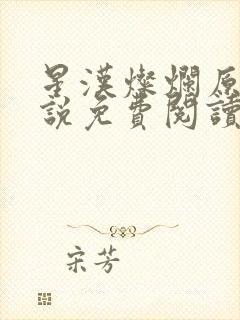 星漢燦爛原
說免費閱讀
宋芳